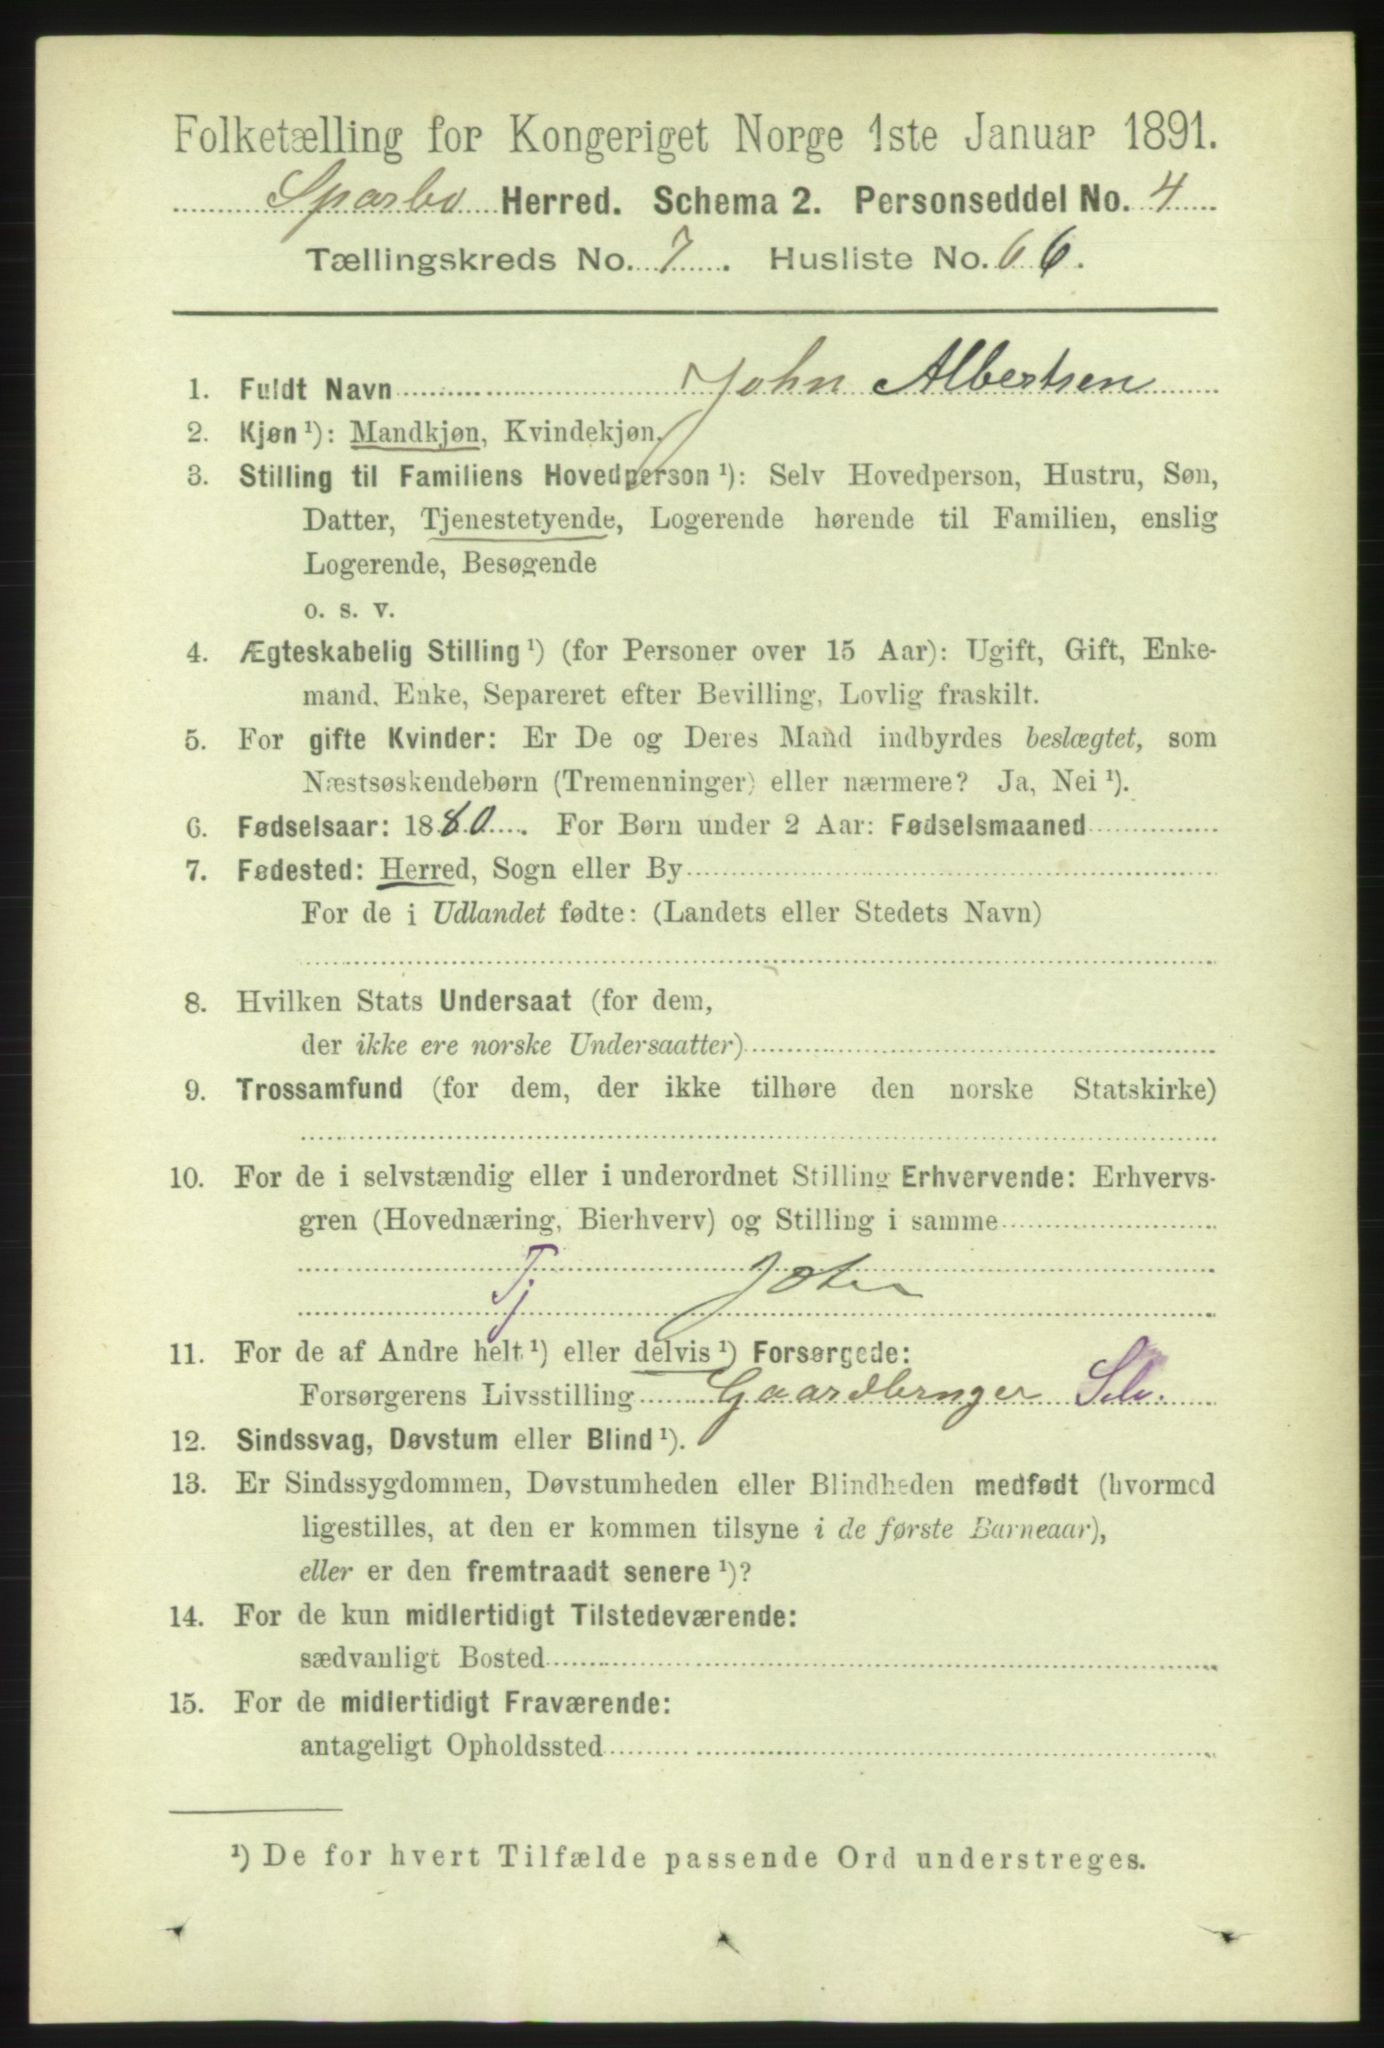 Folketælling for Kongeriget Norge 1ste Januar 1891.
Sparbo Herred. Schema 2. Personseddel No. 4
Tællingskreds No. 7. Husliste No. 66.
1. Fuldt Navn John Albertsen
2. Kjøn ¹): Mandkjøn, Kvindekjøn.
3. Stilling til Familiens Hovedperson ¹): Selv Hovedperson, Hustru, Søn,
Datter, Tjenestetyende, Logerende hørende til Familien, enslig
Logerende, Besøgende
o. s. v.
4. Ægteskabelig Stilling ¹) (for Personer over 15 Aar): Ugift, Gift, Enke-
mand, Enke, Separeret efter Bevilling, Lovlig fraskilt.
5. For gifte Kvinder: Er De og Deres Mand indbyrdes beslægtet, som
Næstsøskendebørn (Tremenninger) eller nærmere? Ja, Nei ¹).
6. Fødselsaar: 1880. For Børn under 2 Aar: Fødselsmaaned
7. Fødested: Herred, Sogn eller By
For de i Udlandet fødte: (Landets eller Stedets Navn)
8. Hvilken Stats Undersaat (for dem,
der ikke ere norske Undersaatter)
9. Trossamfund (for dem, der ikke tilhøre den norske Statskirke)
10. For de i selvstændig eller i underordnet Stilling Erhvervende: Erhvervs-
gren (Hovednæring, Bierhverv) og Stilling i samme
Tj
11. For de af Andre helt ¹) eller delvis ¹) Forsørgede:
Forsørgerens Livsstilling Gaardbruger Selv.
12. Sindssvag, Døvstum eller Blind ¹).
13. Er Sindssygdommen, Døvstumheden eller Blindheden medfødt (hvormed
ligestilles, at den er kommen tilsyne i de første Barneaar),
eller er den fremtraadt senere ¹)?
14. For de kun midlertidigt Tilstedeværende:
sædvanligt Bosted
15. For de midlertidigt Fraværende:
antageligt Opholdssted
¹) De for hvert Tilfælde passende Ord understreges.